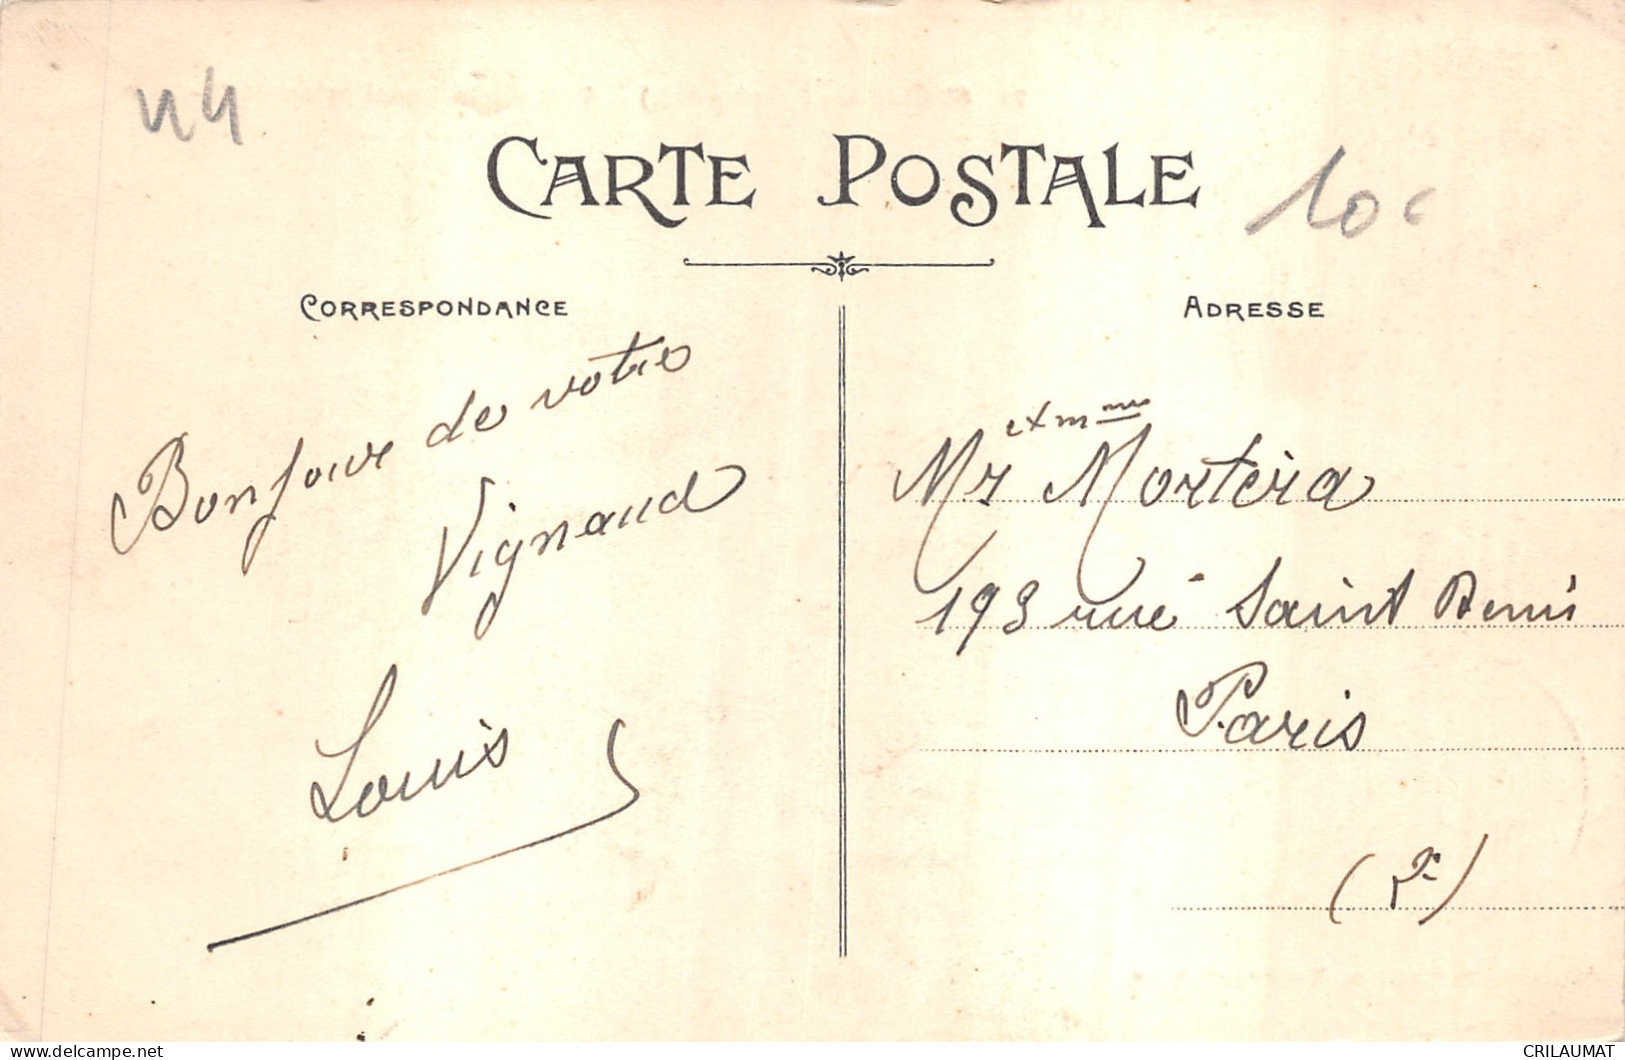 44
CARTE POSTALE
10c
CORRESPONDANCE
ADRESSE
Bonjour de votre
Vignaud
Louis
et Mme
Mr Mortera
193 rue Saint Denis
Paris
CRILAUMAT